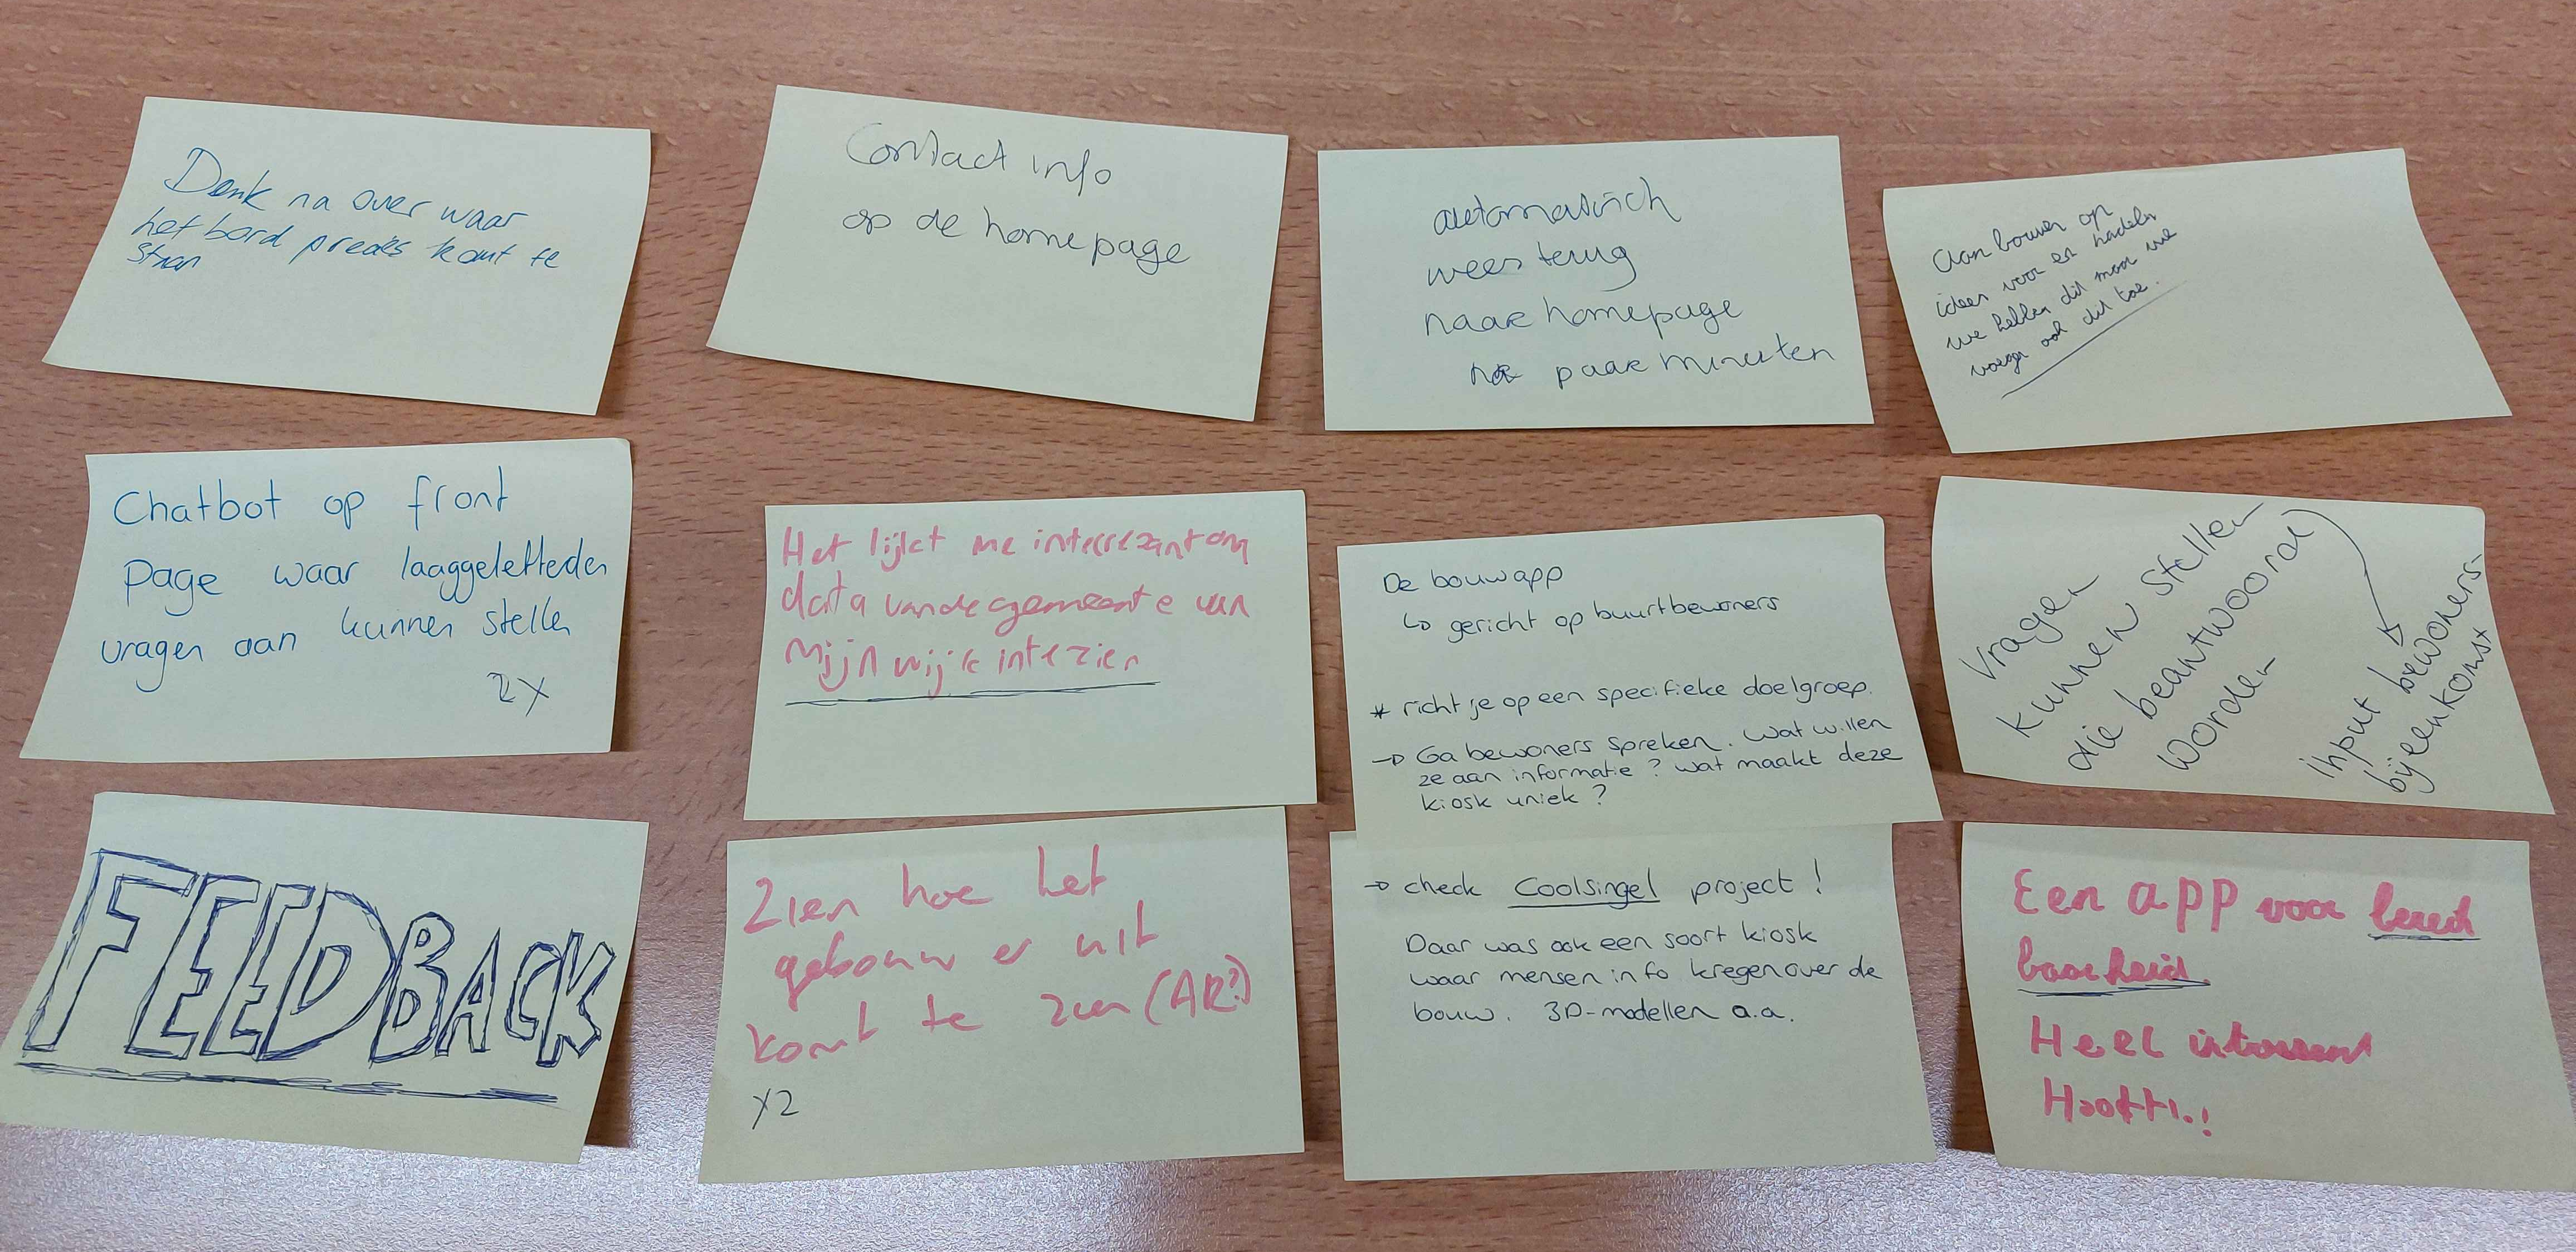 Denk na over waar
het bord precies komt te
staan
Contact info
op de homepage
automatisch
weer terug
naar homepage
na paar minuten
aan bouwen op
ideen voor en nadelen
we hebben dit maar we
voegen ook dit toe.
Chatbot op front
page waar laaggeletterden
vragen aan kunnen stellen
2x
Het lijkt me interrezant om
data van de gemeente van
mijn wijk in te zien
De bouwapp
↳ gericht op buurtbewoners
* richt je op een specifieke doelgroep.
→ Ga bewoners spreken. Wat willen
ze aan informatie? Wat maakt deze
kiosk uniek?
vragen
kunnen stellen
die beantwoord
worden
input bewoners-
bijeenkomst
FEEDBACK
Zien hoe het
gebouw er uit
komt te zien (AR?)
x2
→ check Coolsingel project!
Daar was ook een soort kiosk
waar mensen info kregen over de
bouw. 3D-modellen a.a.
Een app voor
baarheid.
Heel